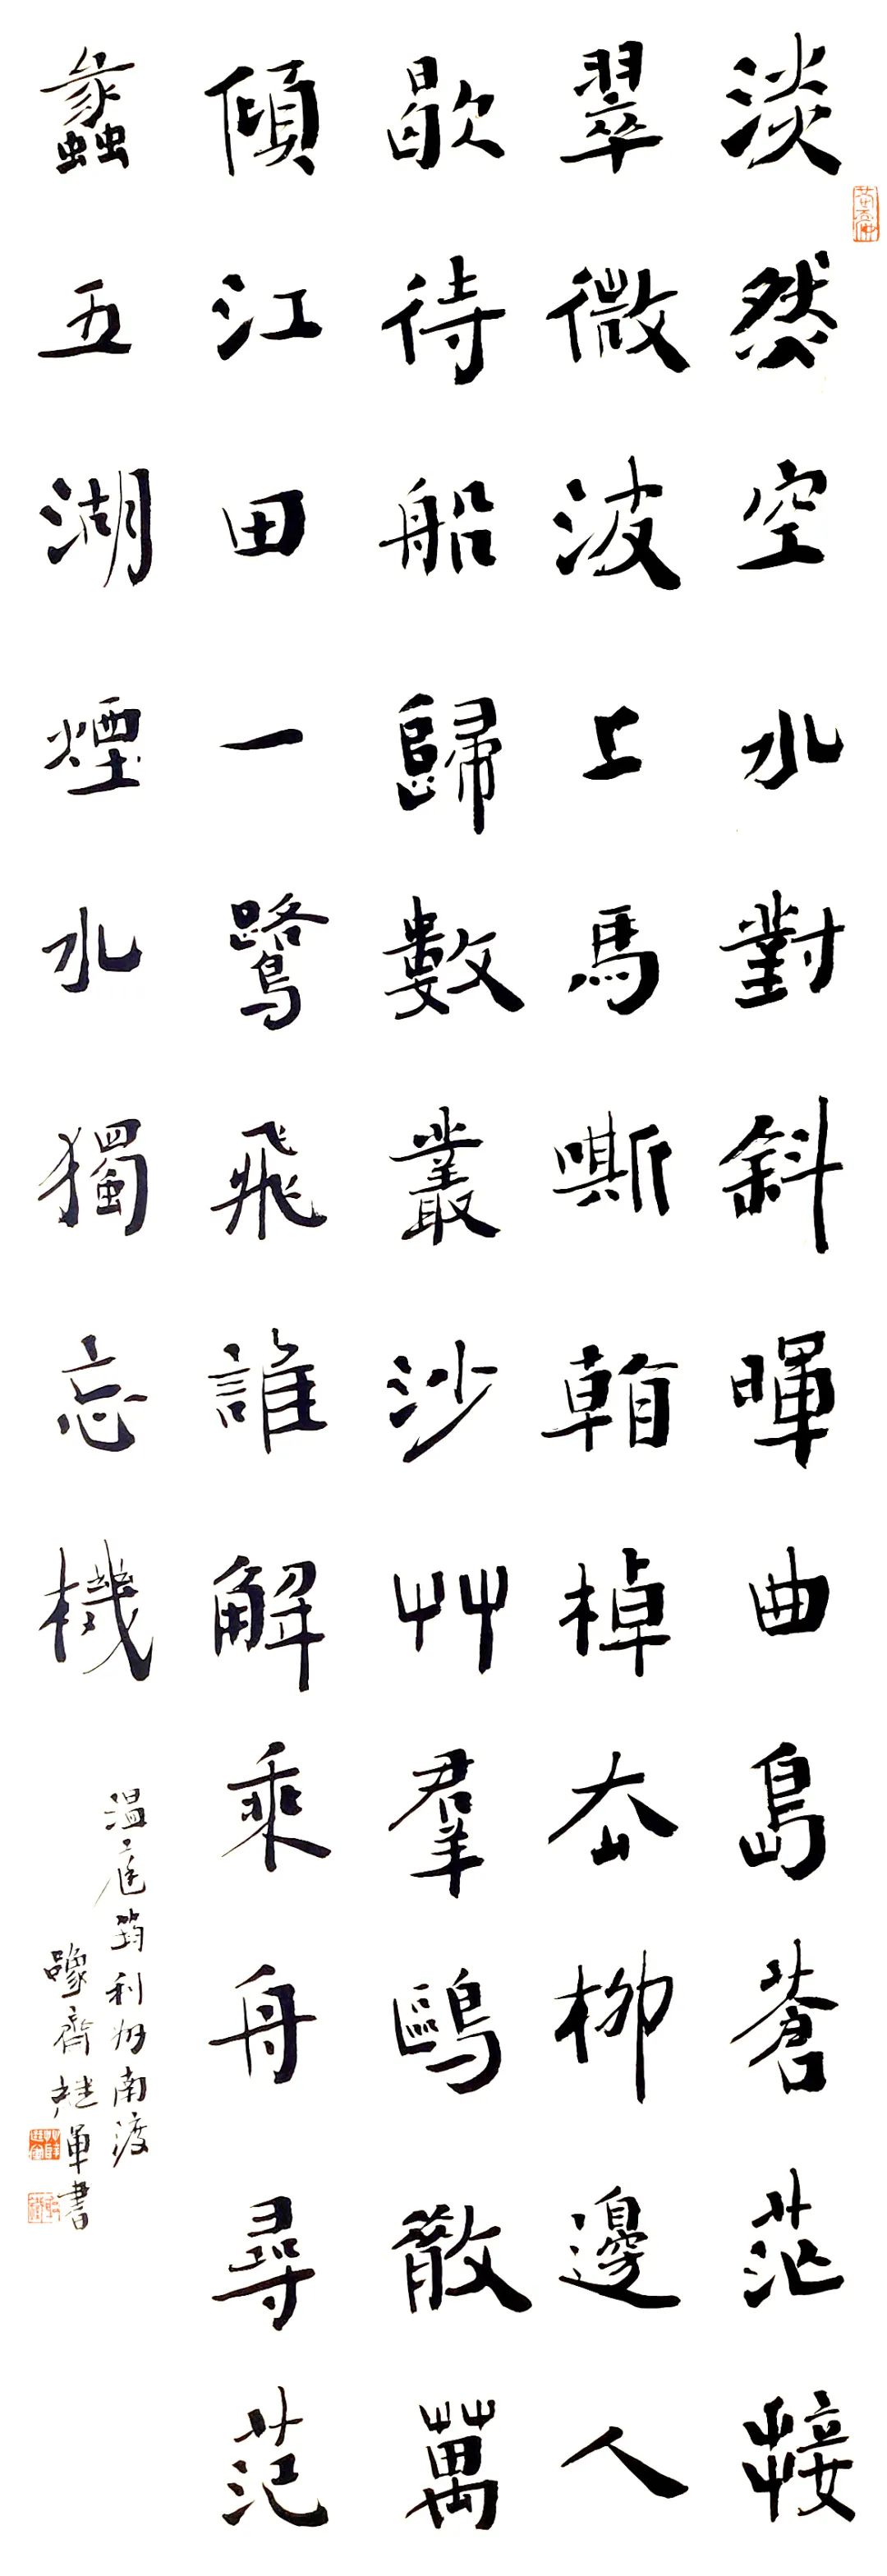 淡然空水對斜暉曲島蒼茫接
翠微波上馬嘶看棹厺柳邊人
歇待船歸數叢沙艸羣鷗散萬
傾江田一鷺飛誰解乘舟尋范
蠡五湖煙水獨忘機
温庭筠利州南渡
齊軍書